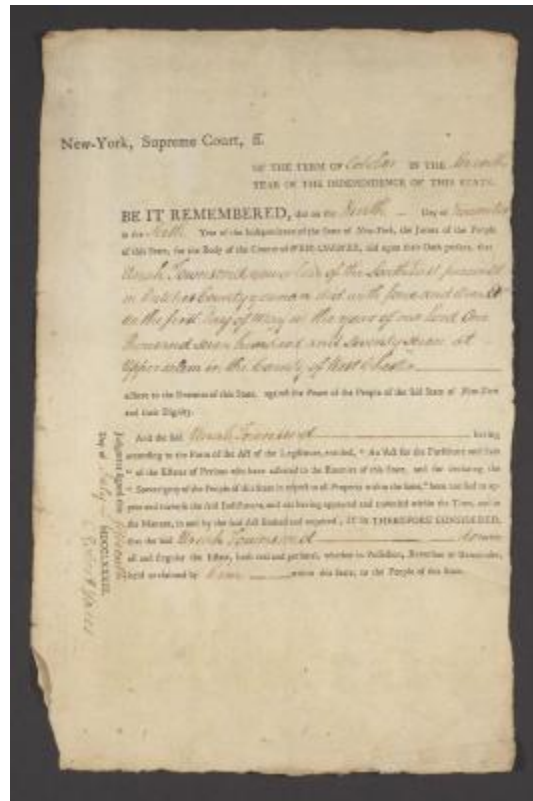 New-York, Supreme Court, ss.
OF THE TERM OF October IN THE Seventh
YEAR OF THE INDEPENDENCE OF THIS STATE.
BE IT REMEMBERED, that on the Day of November
in the Sixth Year of the Independence of the State of New-York, the Jurors of the People
of this State, for the Body of the County of WEST-CHESTER, did upon their Oath present, that
Uriah Townsend late of the South East precinct
in Dutchess County yeoman did with force and Arms &c
on the first day of May in the year of our Lord One
thousand seven hundred and seventy seven at
in the County of West Chester
adhere to the Enemies of this State, against the Peace of the People of the said State of New-York
and their Dignity.
And the said Uriah Townsend having
according to the Form of the Act of the Legislature, entitled, " An Act for the Forfeiture and Sale
" of the Estates of Persons who have adhered to the Enemies of this State, and for declaring the
" Sovereignty of the People of this State in respect to all Property within the same," been notified to ap-
pear and traverse the said Indictment, and not having appeared and traversed within the Time, and in
the Manner, in and by the said Act limited and required, IT IS THEREFORE CONSIDERED,
that the said Uriah Townsend do
all and singular the Estate, both real and personal, whether in Possession, Reversion or Remainder,
held or claimed by him within this State, to the People of this State.
Judgment signed this
Day of July MDCCLXXXIII.